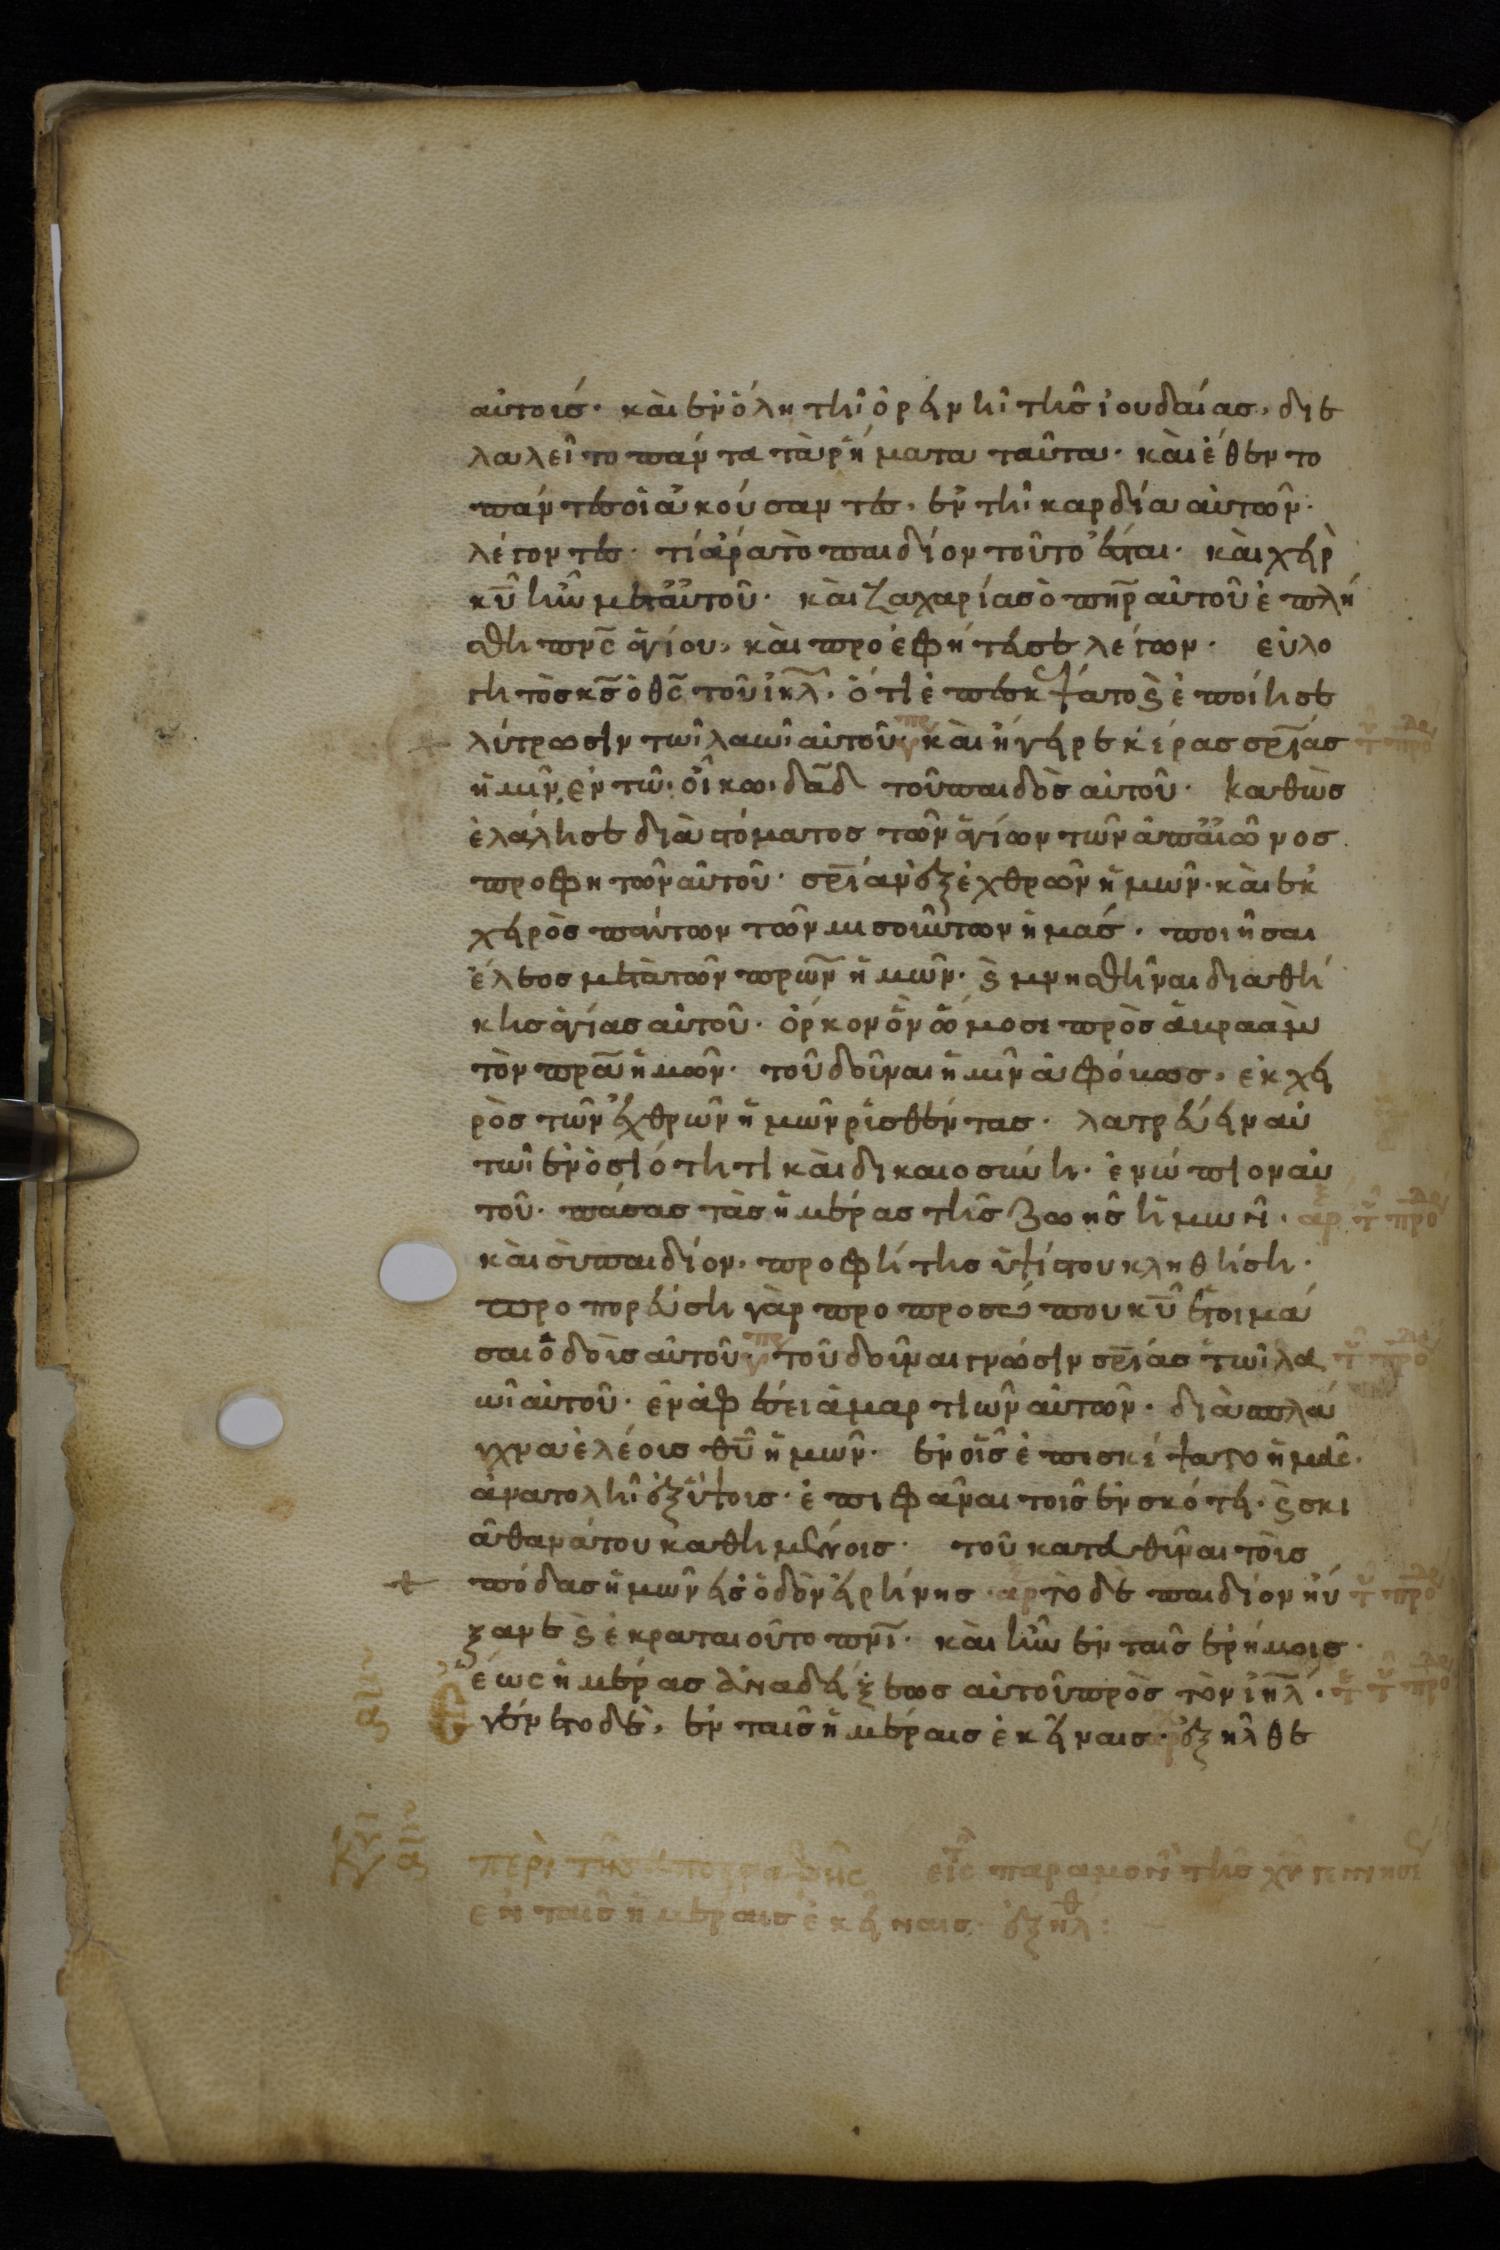 αὐτοισ· καὶ ἐν ὅλη τῆ ὀρεινῆ τῆσ ἰουδαίασ, διε
λαλεῖτο πάντα τὰ ῥήματα ταῦτα· καὶ ἔθεντο
πάντεσ οἱ ἀκούσαντεσ, ἐν τῆ καρδία αὐτῶν·
λέγοντεσ· τί ἄρα τὸ παιδίον τοῦτο ἔσται· καὶ χεὶρ
κ̅υ̅ ἦν μετ αὐτοῦ· καὶ ζαχαρίασ ὁ π̅η̅ρ̅ αὐτοῦ ἐπλή
σθη π̅ν̅ς̅ ἁγίου, καὶ προεφήτευσε λέγων· εὐλο
γητὸσ κ̅σ̅ ὁ θ̅ς̅ τοῦ ἰ̅η̅λ̅· ὅτι ἐπεσκέψατο ϗ ἐποίησε
λύτρωσιν τῶι λαῶι αὐτοῦ· καὶ ἤγειρε κέρασ σ̅ρ̅ίασ
ἡμῖν, ἐν τῶ οἴκω δ̅α̅δ̅ τοῦ παιδὸσ αὐτοῦ· καθὼσ
ἐλάλησε διὰ στόματοσ τῶν ἁγίων τῶν ἀπ αἰῶνοσ
προφητῶν αὐτοῦ· σ̅ρ̅ίαν ἐξ ἐχθρῶν ἡμῶν· καὶ ἐκ
χειρὸσ πάντων τῶν μισούντων ἡμάσ· ποιῆσαι
ἔλεοσ μετὰ τῶν π̅ρ̅ω̅ν̅ ἡμῶν· ϗ μνησθῆναι διαθή
κησ ἁγίασ αὐτοῦ· ὅρκον ὃν ὤμοσε πρὸσ ἀβραὰμ
τὸν π̅ρ̅α̅ ἡμῶν· τοῦ δοῦναι ἡμῖν ἀφόβωσ, ἐκ χει
ρὸσ τῶν ἐχθρῶν ἡμῶν ῥυσθέντασ· λατρεύειν αὐ
τῶι ἐν ὁσιότητι καὶ δικαιοσύνη· ἐνώπιον αὐ
τοῦ· πάσασ τὰσ ἡμέρασ τῆσ ζωῆσ ἡμῶν·
καὶ σὺ παιδίον, προφήτησ ὑψίστου κληθήση·
προπορεύση γὰρ προ προσώπου κ̅υ̅ ἑτοιμά
σαι ὁδοὺσ αὐτοῦ· τοῦ δοῦναι γνώσιν σ̅ρ̅ίασ τῶι λα
ῶι αὐτοῦ· ἐν ἀφέσει ἁμαρτιῶν αὐτῶν· διὰ σπλά
γχνα ἐλέουσ θ̅υ̅ ἡμῶν· ἐν οἷσ ἐπεσκέψατο ἡμᾶς·
ἀνατολῆ ἐξ ὕψουσ· ἐπιφᾶναι τοῖσ ἐν σκότει· ϗ σκι
ᾶ θανάτου καθημένοισ· τοῦ κατευθῦναι τοὺσ
πόδασ ἡμῶν εἰσ ὁδὸν εἰρήνησ· τὸ δὲ παιδίον ηὔ
ξανε ϗ ἐκραταιοῦτο π̅ν̅ι̅· καὶ ἦν ἐν ταῖσ ἐρήμοισ·
ἕως ἡμέρασ ἀναδείξεωσ αὐτοῦ πρὸσ τὸν ἰ̅η̅λ̅·
Ἐγένετο δὲ, ἐν ταῖσ ἡμέραισ ἐκείναισ· ἐξῆλθε
περὶ τῆσ ἀπογραφῆς εἰς παραμονὴν τῆσ χ̅υ̅ γεννησ
ἐν ταῖσ ἡμέραισ ἐκείναισ· ἐξηλθ: